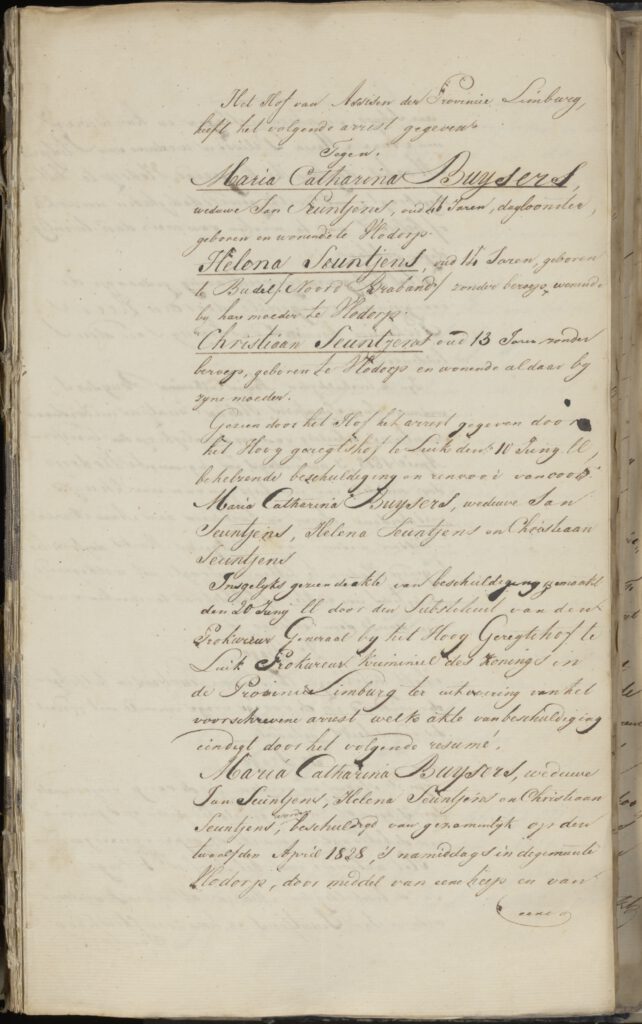 Het Hof van Assisen der Provincie Limburg,
heeft het volgende arrest gegeven
Tegen.
Maria Catharina Buysers,
weduwe Jan Seuntjens, oud 46 Jaren, dagloonder,
geboren en wonende te Vlodorp.
Helena Seuntjens, oud 14 Jaren, geboren
te Budel (Noord Braband) zonder beroep, wonende
by hare moeder te Vlodorp.
Christiaan Seuntjens oud 13 Jaren zonder
beroep, geboren te Vlodorp en wonende aldaar by
zyne moeder.
Gezien door het Hof het arrest gegeven door
het Hoog geregtshof te Luik den 10 Juny ll,
behelzende beschuldiging en renvooi van voorn
Maria Catharina Buysers, weduwe Jan
Seuntjens, Helena Seuntjens en Christiaan
Seuntjens
Insgelyks gezien de akte van beschuldiging gemaakt
den 20 Juny ll door den Substituut van den
Prokureur Generaal by het Hoog Geregtshof te
Luik Prokureur Krimineel des Konings in
de Provincie Limburg ter uitvoering van het
voorschrevene arrest welk akte van beschuldiging
eindigt door het volgende resumé.
Maria Catharina Buysers, weduwe
Jan Seuntjens, Helena Seuntjens en Christiaan
Seuntjens, worden beschuldigd van gezamentlyk op den
twaalfden April 1828, 's namiddags in de gemeente
Vlodorp, door middel van eene heep en van
eene